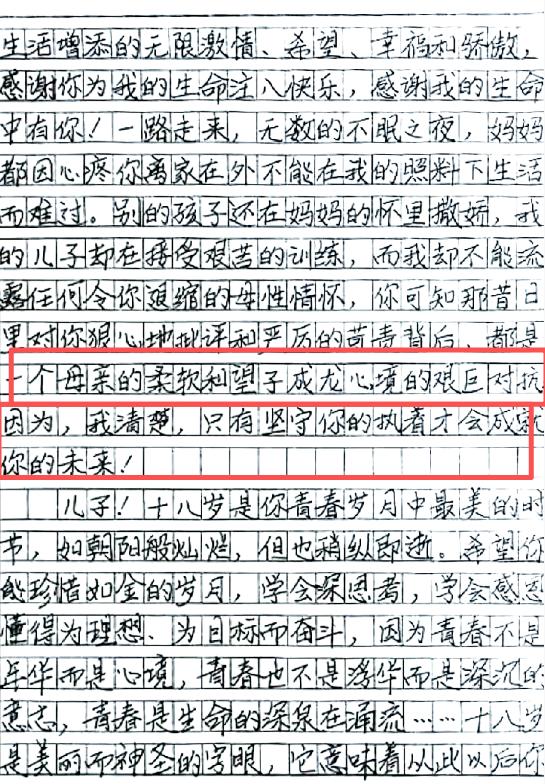 生活增添的无限激情、希望、幸福和骄傲，
感谢你为我的生命注入快乐，感谢我的生命
中有你！一路走来，无数的不眠之夜，妈妈
都因心疼你离家在外不能在我的照料下生活
而难过。别的孩子还在妈妈的怀里撒娇，我
的儿子却在接受艰苦的训练，而我却不能流
露任何令你退缩的母性情怀，你可知那昔日
里对你狠心地批评和严厉的苛责背后，都是
一个母亲的柔软和望子成龙心境的艰巨对抗
因为，我清楚，只有坚守你的执着才会成就
你的未来！
儿子！十八岁是你青春岁月中最美的时
节，如朝阳般灿烂，但也稍纵即逝。希望你
能珍惜如金的岁月，学会深思考，学会感恩
懂得为理想、为目标而奋斗，因为青春不是
年华而是心境，青春也不是浮华而是深沉的
意志，青春是生命的深泉在涌流……十八岁
是美丽而神圣的字眼，它意味着从此以后你